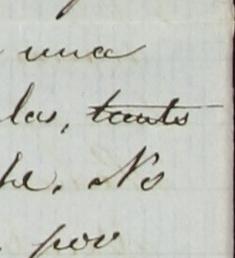 una
las, tanto
he. No
por